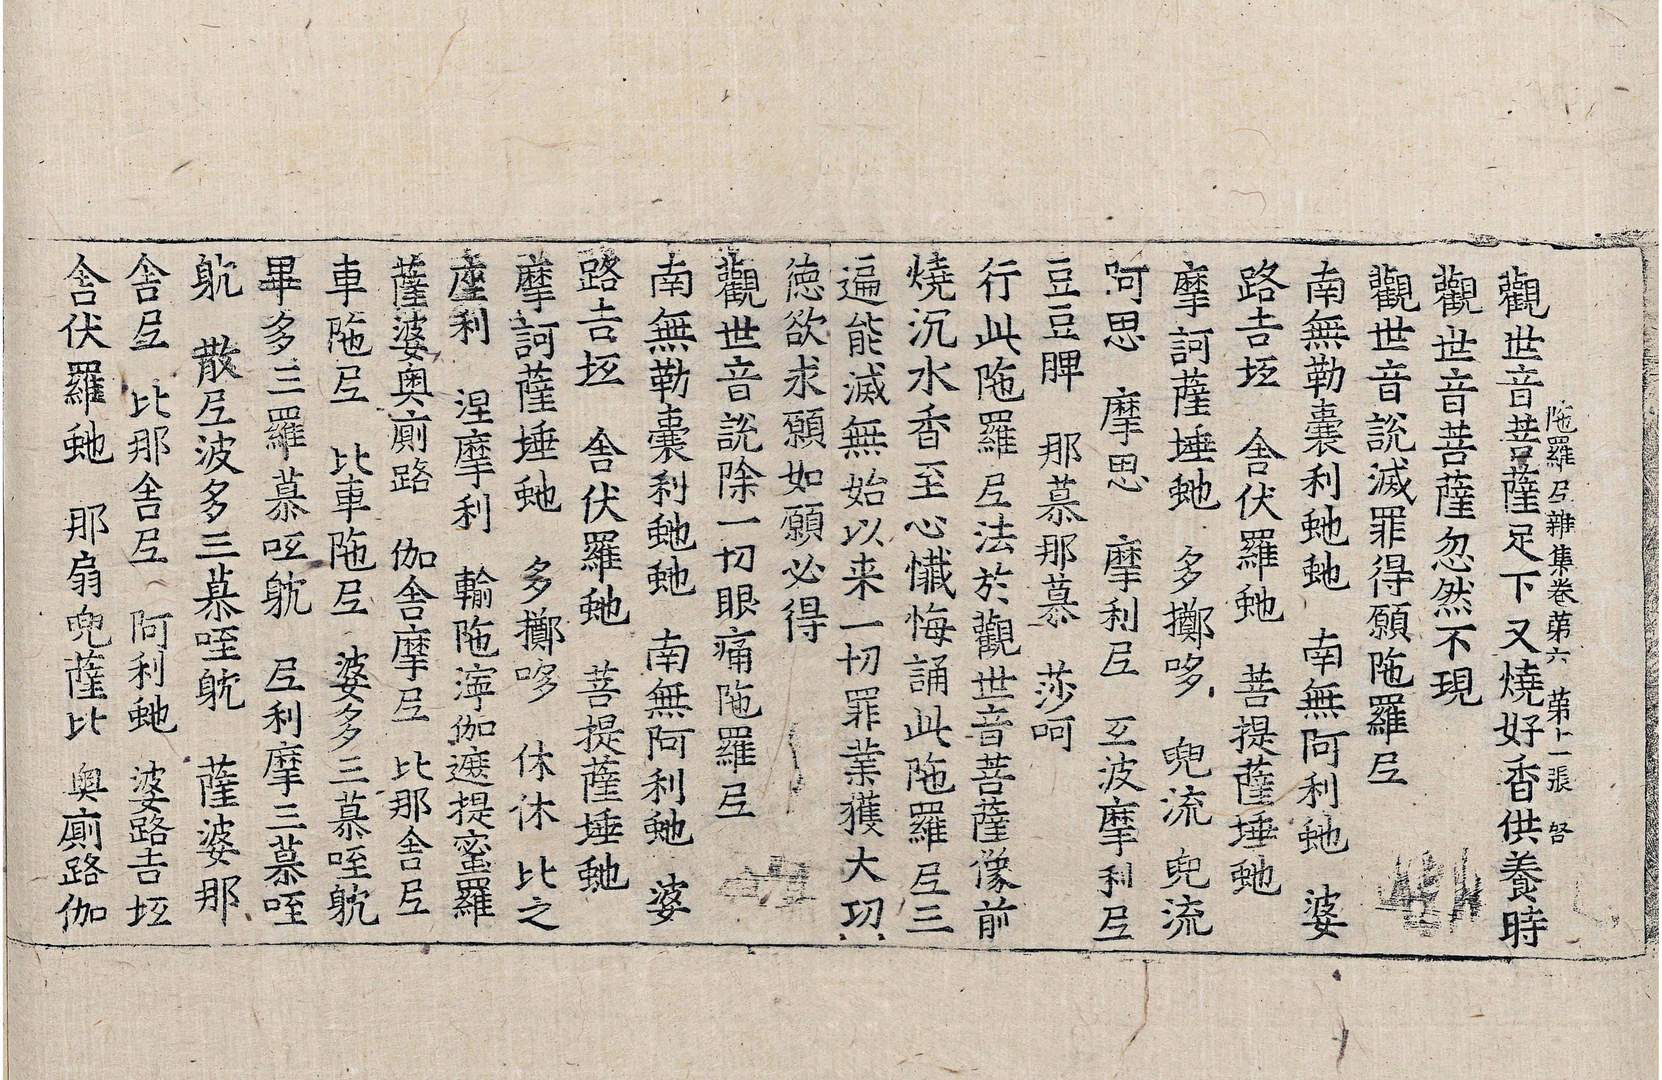 陁羅尼雜集卷第六 第十一張 明
觀世音菩薩足下又燒好香供養時
觀世音菩薩忽然不現
觀世音說滅罪得願陁羅尼
南無勒囊利虵虵 南無阿利虵 婆
路吉坻 舍伏羅虵 菩提薩埵虵
摩訶薩埵虵 多擲哆 兜流兜流
阿思 摩思 摩利尼 㸦波摩利尼
豆豆脾 那慕那慕 莎呵
行此陁羅尼法於觀世音菩薩像前
燒沉水香至心懺悔誦此陁羅尼三
遍能滅無始以来一切罪業獲大功
徳欲求願如願必得
觀世音說除一切眼痛陁羅尼
南無勒囊利虵虵 南無阿利虵 婆
路吉坻 舍伏羅虵 菩提薩埵虵
摩訶薩埵虵 多擲哆 休休 比之
座利 涅摩利 輸陁濘伽遮提蜜羅
薩婆奥廁路 伽舍摩尼 比那舍尼
車陁尼 比車陁尼 婆多三慕咥躭
畢多三羅慕咥躭 尼利摩三慕咥
躭 散尼波多三慕咥躭 薩婆那
舍尼 比那舍尼 阿利虵 婆路吉坻
舍伏羅虵 那扇兜薩比 奥廁路伽